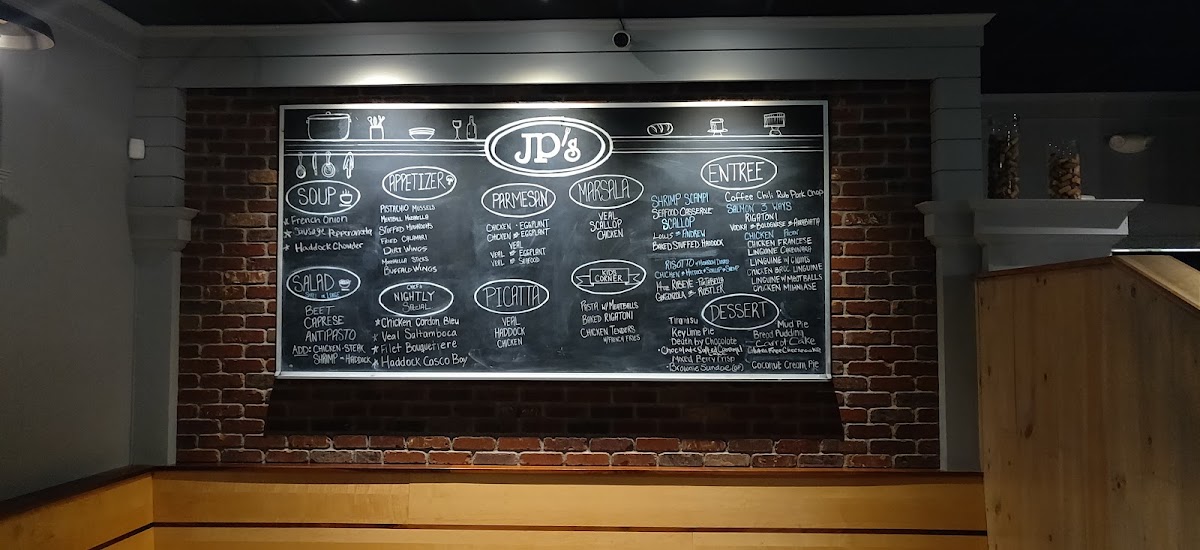 JP's
SOUP
French Onion
Sausage
Haddock Chowder
SALAD
BEET
CAPRESE
ANTIPASTO
ADD: CHICKEN - STEAK
SHRIMP - HADDOCK
APPETIZER
PISTACHIO MUSSELS
STUFFED
FRIED CALAMARI
DIRT WINGS
MOZZARELLA STICKS
BUFFALO WINGS
NIGHTLY
SPECIAL
Chicken Cordon Bleu
Veal Saltamboca
Filet Bouquetiere
Haddock Casco Bay
PARMESAN
CHICKEN - EGGPLANT
CHICKEN EGGPLANT
VEAL
VEAL EGGPLANT
VEAL SEAFOOD
PICATTA
VEAL
HADDOCK
CHICKEN
MARSALA
VEAL
SCALLOP
CHICKEN
KIDS
CORNER
PASTA W/ MEATBALLS
BAKED RIGATONI
CHICKEN TENDERS
W/ FRENCH FRIES
ENTREE
SHRIMP SCAMPI
SEAFOOD CASSEROLE
SCALLOP
LOUIS ANDREW
BAKED STUFFED HADDOCK
RISOTTO
CHICKEN
RIBEYE
GORGONZOLA RUSTLER
Coffee Chili Rub Pork Chop
SALMON 3 WAYS
RIGATONI
VODKA BOLOGNESE
CHICKEN
CHICKEN FRANCESE
LINGUINE CARBONARA
LINGUINE W/ CLAMS
CHICKEN BROC LINGUINE
LINGUINE W/ MEATBALLS
CHICKEN MILANAISE
DESSERT
Tiramisu
Key Lime Pie
Death by Chocolate
Chocolate Salted Caramel
Mixed Berry Crisp
Brownie Sundae (GF)
Mud Pie
Bread Pudding
Carrot Cake
Gluten Free Cheesecake
Coconut Cream Pie